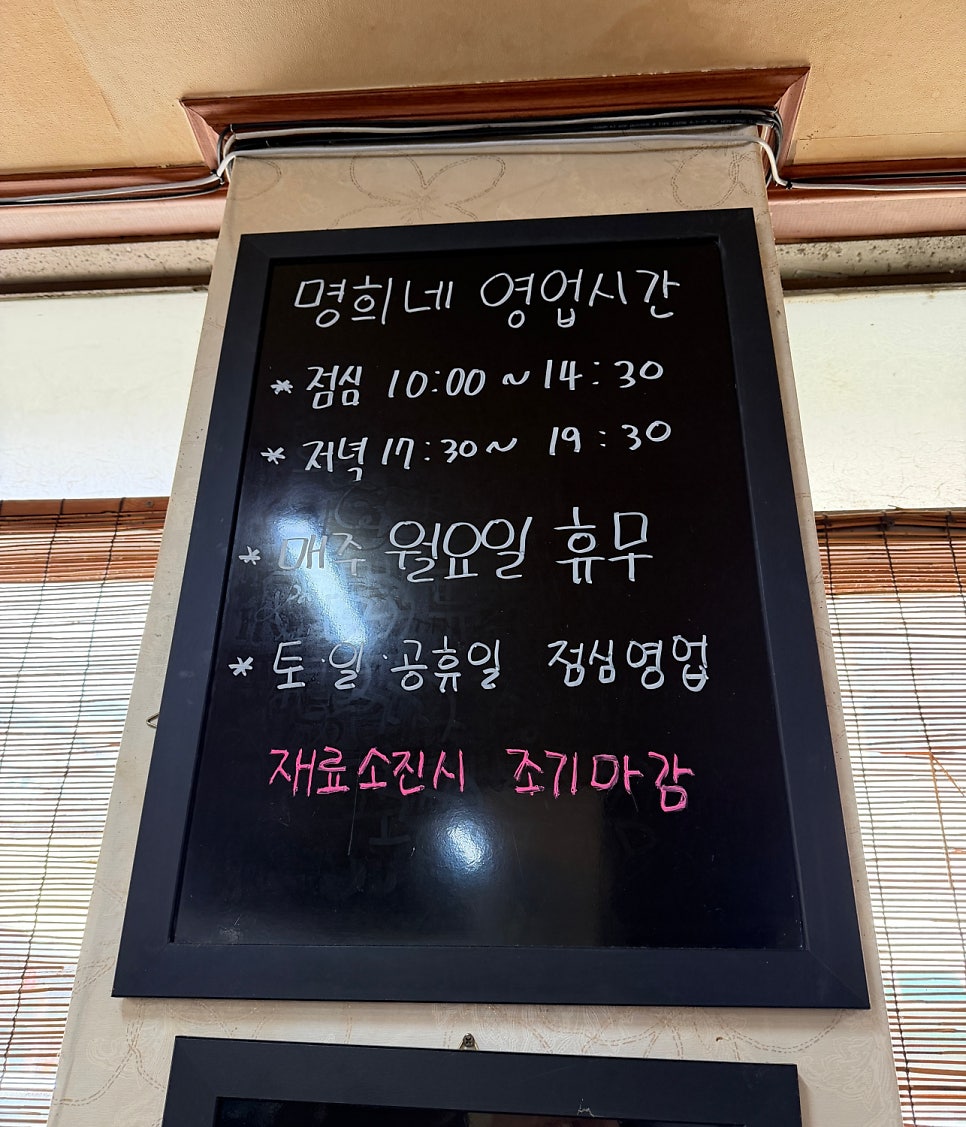 명희네 영업시간
* 점심 10:00 ~ 14:30
* 저녁 17:30 ~ 19:30
* 매주 월요일 휴무
* 토·일·공휴일 점심영업
재료소진시 조기마감